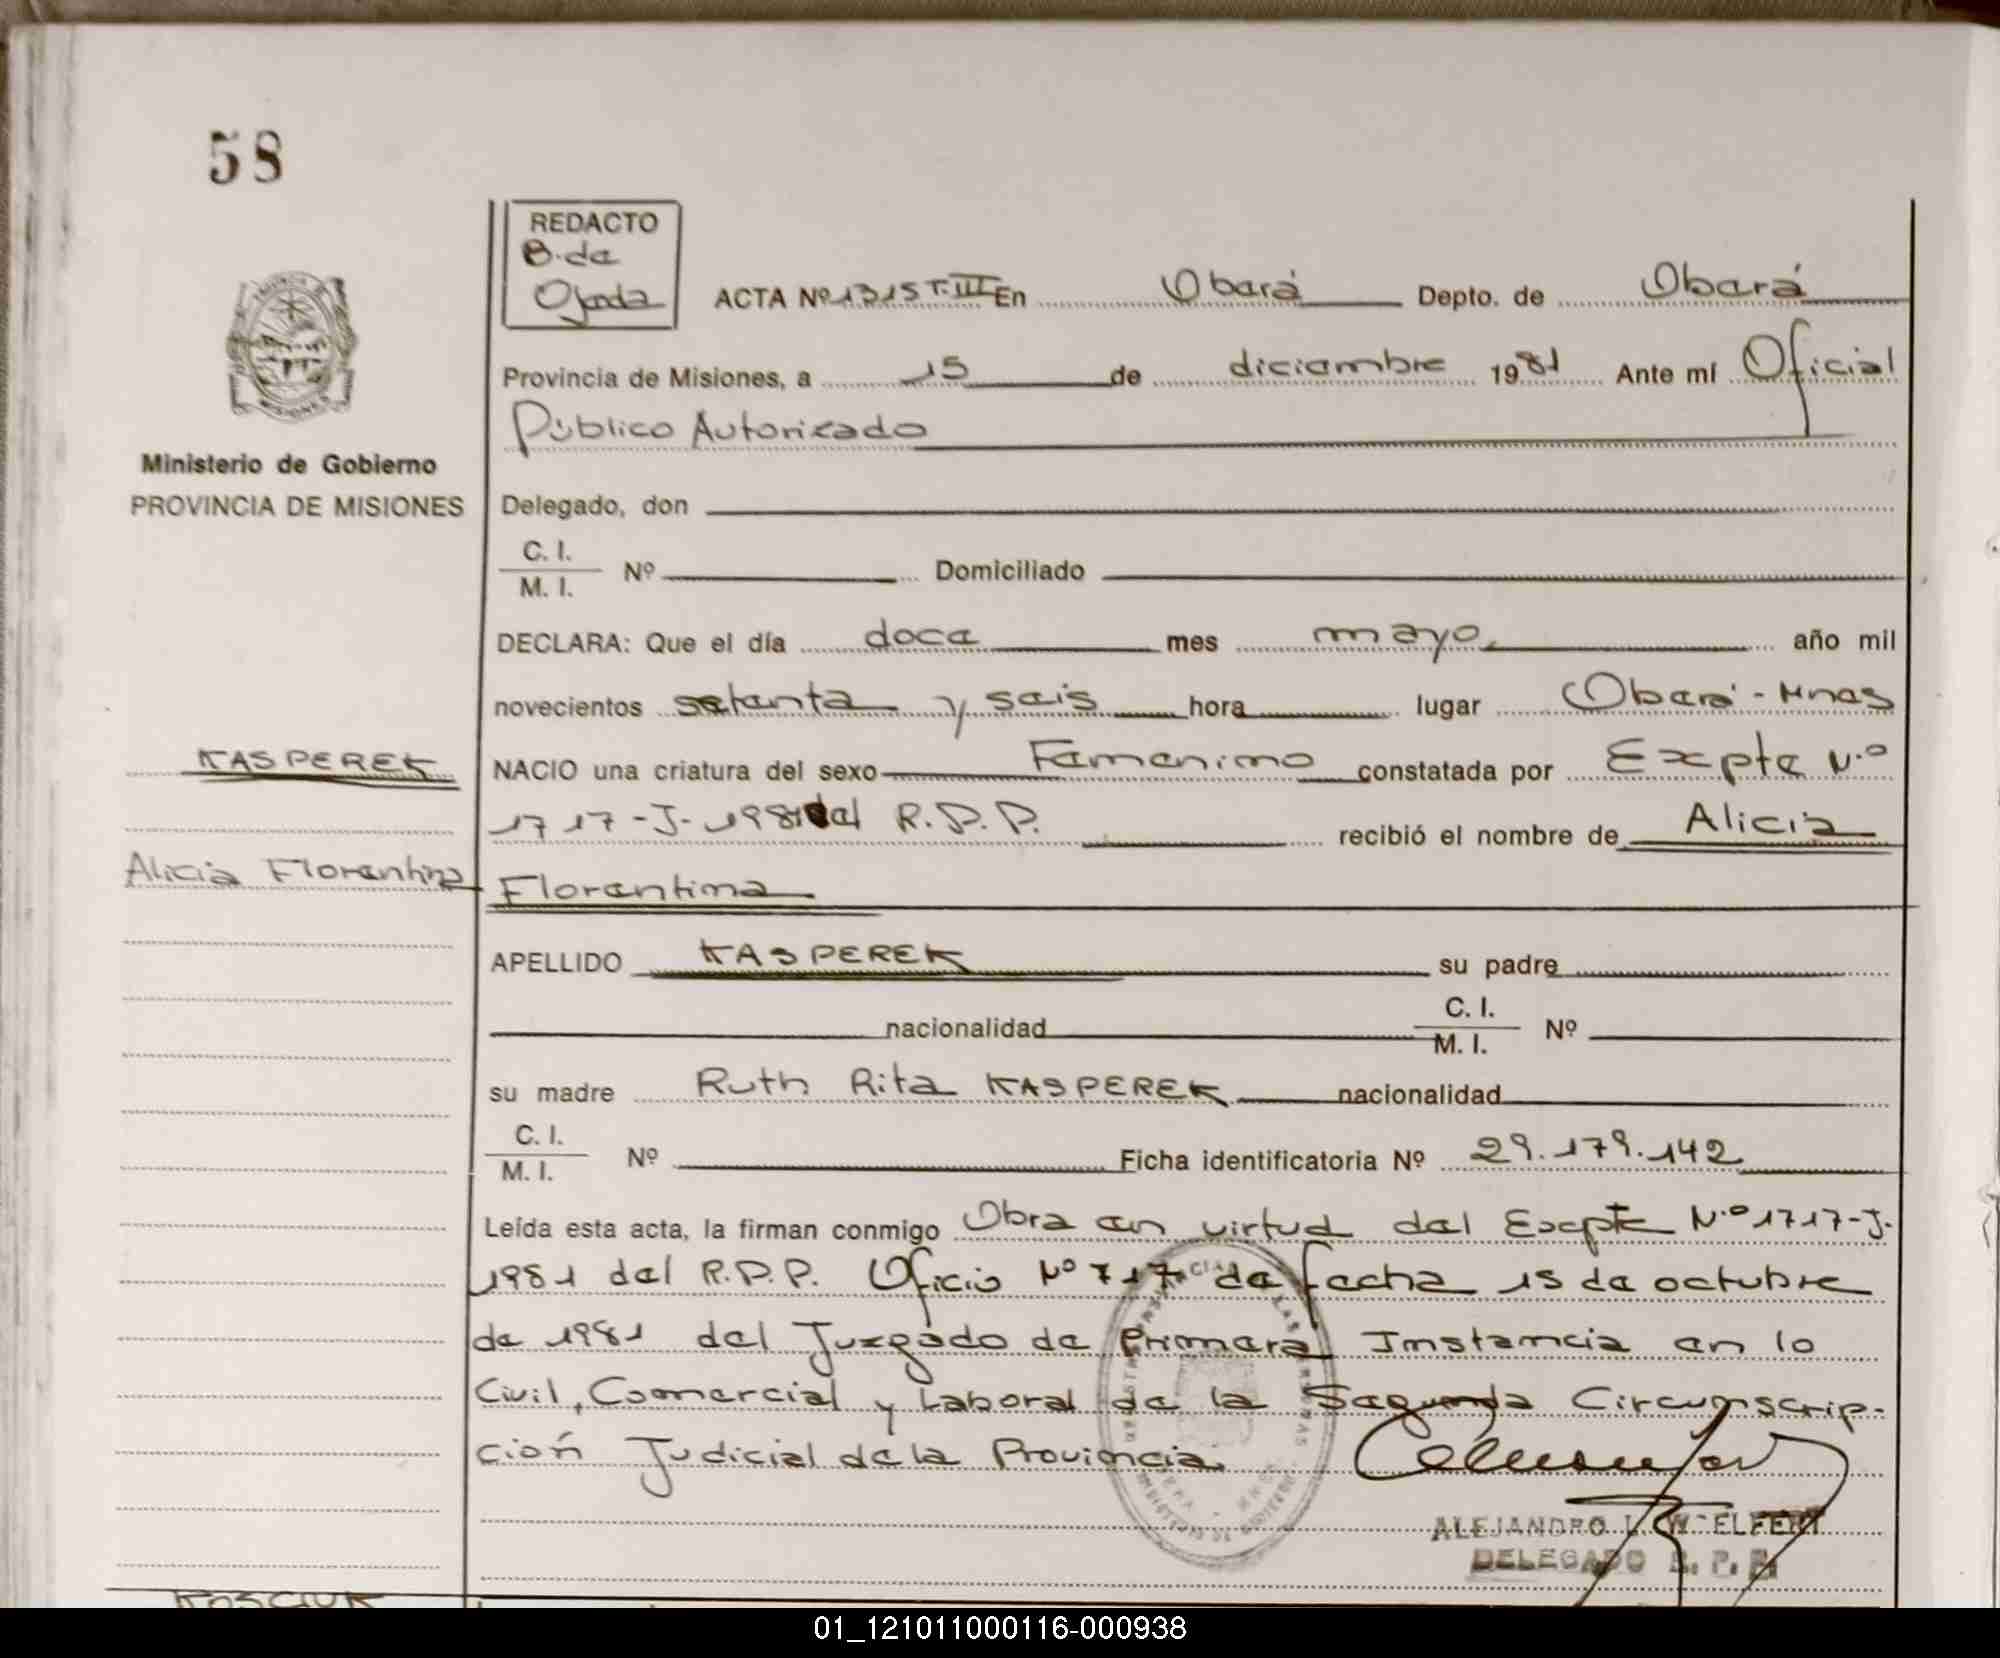 58
REDACTO
B. de
Ojeda
ACTA Nº 1315 T. III En Oberá Depto. de Oberá
Provincia de Misiones, a 15 de diciembre 1981 Ante mí Oficial
Público Autorizado
Ministerio de Gobierno
PROVINCIA DE MISIONES
Delegado, don
C. I.
M. I. Nº Domiciliado
DECLARA: Que el día doce mes mayo año mil
novecientos setenta y seis hora lugar Oberá - Mnes
KASPEREK
NACIO una criatura del sexo Femenino constatada por Expte Nº
1717-J-1981 del R.P.P. recibió el nombre de Alicia
Alicia Florentina
Florentina
APELLIDO KASPEREK su padre
nacionalidad C. I.
M. I. Nº
su madre Ruth Rita KASPEREK nacionalidad
C. I.
M. I. Nº Ficha identificatoria Nº 29.179.142
Leída esta acta, la firman conmigo Obra en virtud del Expte Nº 1717-J-
1981 del R.P.P. Oficio Nº 717 de fecha 15 de octubre
de 1981 del Juzgado de Primera Instancia en lo
Civil, Comercial y Laboral de la Segunda Circunscrip-
ción Judicial de la Provincia.
ALEJANDRO L. W. ELFERT
DELEGADO R. P. P.
01_121011000116-000938